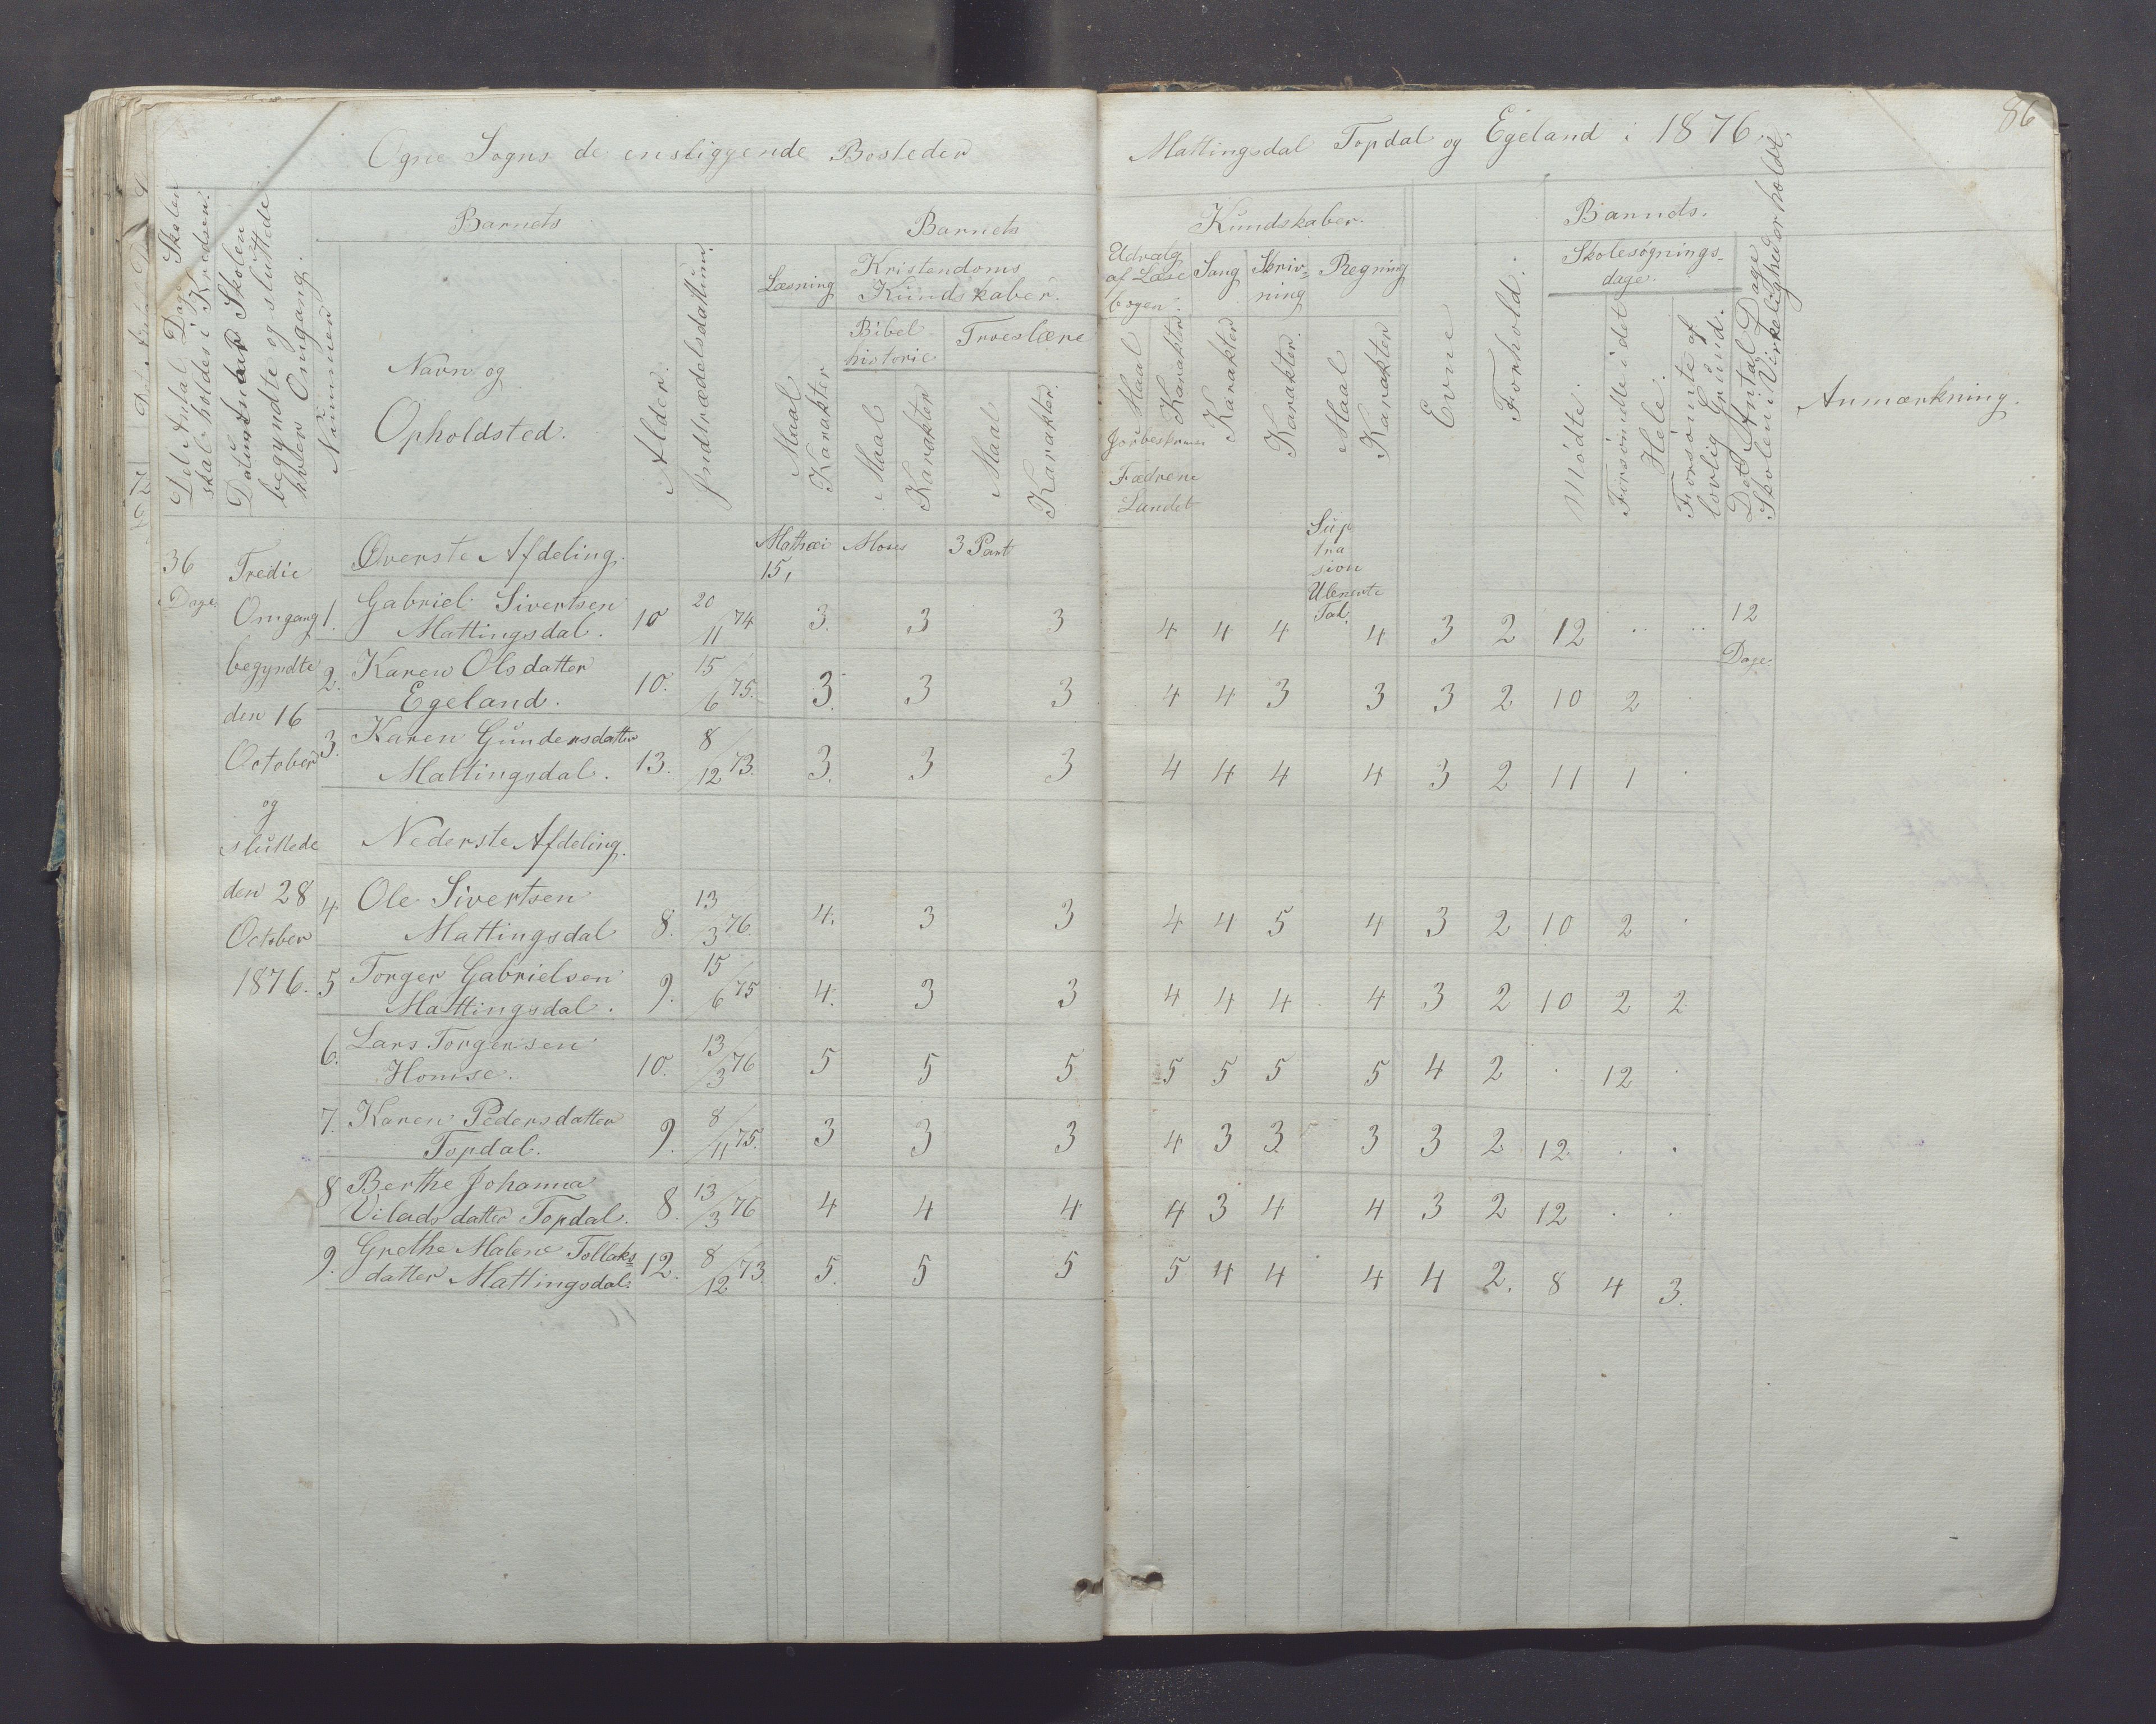 Ogne Sogns de ensliggende Bosteder
Mattingsdal Topdal og Egeland i 1876.
86
Det Antal Dage Skolen
skal holdes i Kredsen.
Datum naar Skolen
begyndte og sluttede
hver Omgang.
Nummer
Barnets
Navn og
Opholdsted.
Alder.
Indtrædelsesdatum.
Barnets
Læsning
Maal
Karakter
Kristendoms
Kundskaber.
Bibel
historie
Maal
Karakter
Troeslære
Maal
Karakter.
Kundskaber.
Udvalg
af Læse
bogen.
Maal
Karakter.
Sang
Karakter
Skriv-
ning
Karakter.
Regning
Maal
Karakter
Evne
Forhold.
Barnets.
Skolesøgnings-
dage.
Mødte.
Forsømte i det
Hele.
Forsømte af
lovlig Grund.
Det Antal Dage
Skolen i Virkeligheden holdt.
Anmærkning.
Fædrene
Landet
36
Dage.
Tredie
Omgang
begyndte
den 16
October
og
sluttede
den 28
October
1876.
Øverste Afdeling.
Mathæi
15,
Moses
3 Part
Sup
tra
sion
Ubenevnte
Tal,
12
Dage.
1. Gabriel Sivertsen
Mattingsdal. 10 20/11 74 3. 3 3 4 4 4 4 3 2 12 . . . .
2. Karen Olsdatter
Egeland. 10. 15/6 75. 3. 3 3 4 4 3 3 3 2 10 2 .
3. Karen Gundersdatter
Mattingsdal. 13. 8/12 73. 3. 3 3 4 4 4 4 3 2 11 1 .
Nederste Afdeling.
4 Ole Sivertsen
Mattingsdal 8. 13/3 76. 4. 3 3 4 4 5 4 3 2 10 2 .
5 Torger Gabrielsen
Mattingsdal. 9. 15/6 75 4. 3 3 4 4 4 4 3 2 10 2 2
6. Lars Torgersen
Homse. 10. 13/3 76 5 5 5 5 5 5 5 4 2 . 12 .
7. Karen Pedersdatter
Topdal. 9. 8/11 75. 3 3 3 4 3 3 3 3 2 12. . .
8 Berthe Johanna
Viladsdatter Topdal. 8. 13/3 76 4 4 4 4 3 4 4 3 2 12 . .
9. Grethe Malene Tollaks
datter Mattingsdal. 12. 8/12 73. 5. 5 5 5 4 4 4 4 2. 8 4 3.